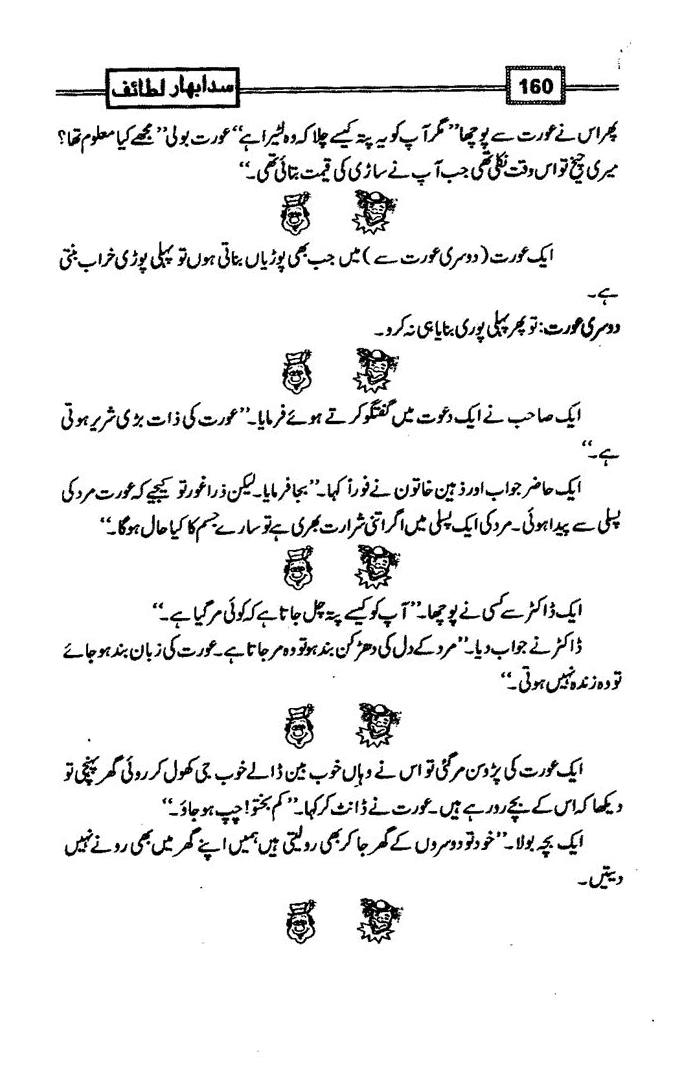 سدابهار لطائف
160
پھر اس نے عورت سے پوچھا ’’ مگر آپ کو یہ پتہ کیسے چلا کہ وہ لٹیرا ہے‘‘ عورت بولی’’ مجھے کیا معلوم تھا؟
میری چیخ تو اس وقت نکلی تھی جب آپ نے ساڑی کی قیمت بتائی تھی۔‘‘
ایک عورت ( دوسری عورت سے ) میں جب بھی پوڑیاں بناتی ہوں تو پہلی پوڑی خراب بنتی
ہے۔
دوسری عورت: تو پھر پہلی پوری بنایا ہی نہ کرو۔
ایک صاحب نے ایک دعوت میں گفتگو کرتے ہوئے فرمایا۔’’ عورت کی ذات بڑی شریر ہوتی
ہے۔‘‘
ایک حاضر جواب اور ذہین خاتون نے فوراً کہا۔’’ بجا فرمایا۔ لیکن ذرا غور تو کیجیے کہ عورت مرد کی
پسلی سے پیدا ہوئی۔ مرد کی ایک پسلی میں اگر اتنی شرارت بھری ہے تو سارے جسم کا کیا حال ہوگا۔‘‘
ایک ڈاکٹر سے کسی نے پوچھا۔’’ آپ کو کیسے پتہ چل جاتا ہے کہ کوئی مر گیا ہے۔‘‘
ڈاکٹر نے جواب دیا۔’’ مرد کے دل کی دھڑکن بند ہو تو وہ مر جاتا ہے۔ عورت کی زبان بند ہو جائے
تو وہ زندہ نہیں ہوتی۔‘‘
ایک عورت کی پڑوسن مر گئی تو اس نے وہاں خوب بین ڈالے خوب جی کھول کر روئی گھر پہنچی تو
دیکھا کہ اس کے بچے رو رہے ہیں۔ عورت نے ڈانٹ کر کہا۔’’ کم بختو! چپ ہو جاؤ۔‘‘
ایک بچہ بولا۔’’ خود تو دوسروں کے گھر جا کر بھی رو لیتی ہیں، ہمیں اپنے گھر میں بھی رونے نہیں
دیتیں۔